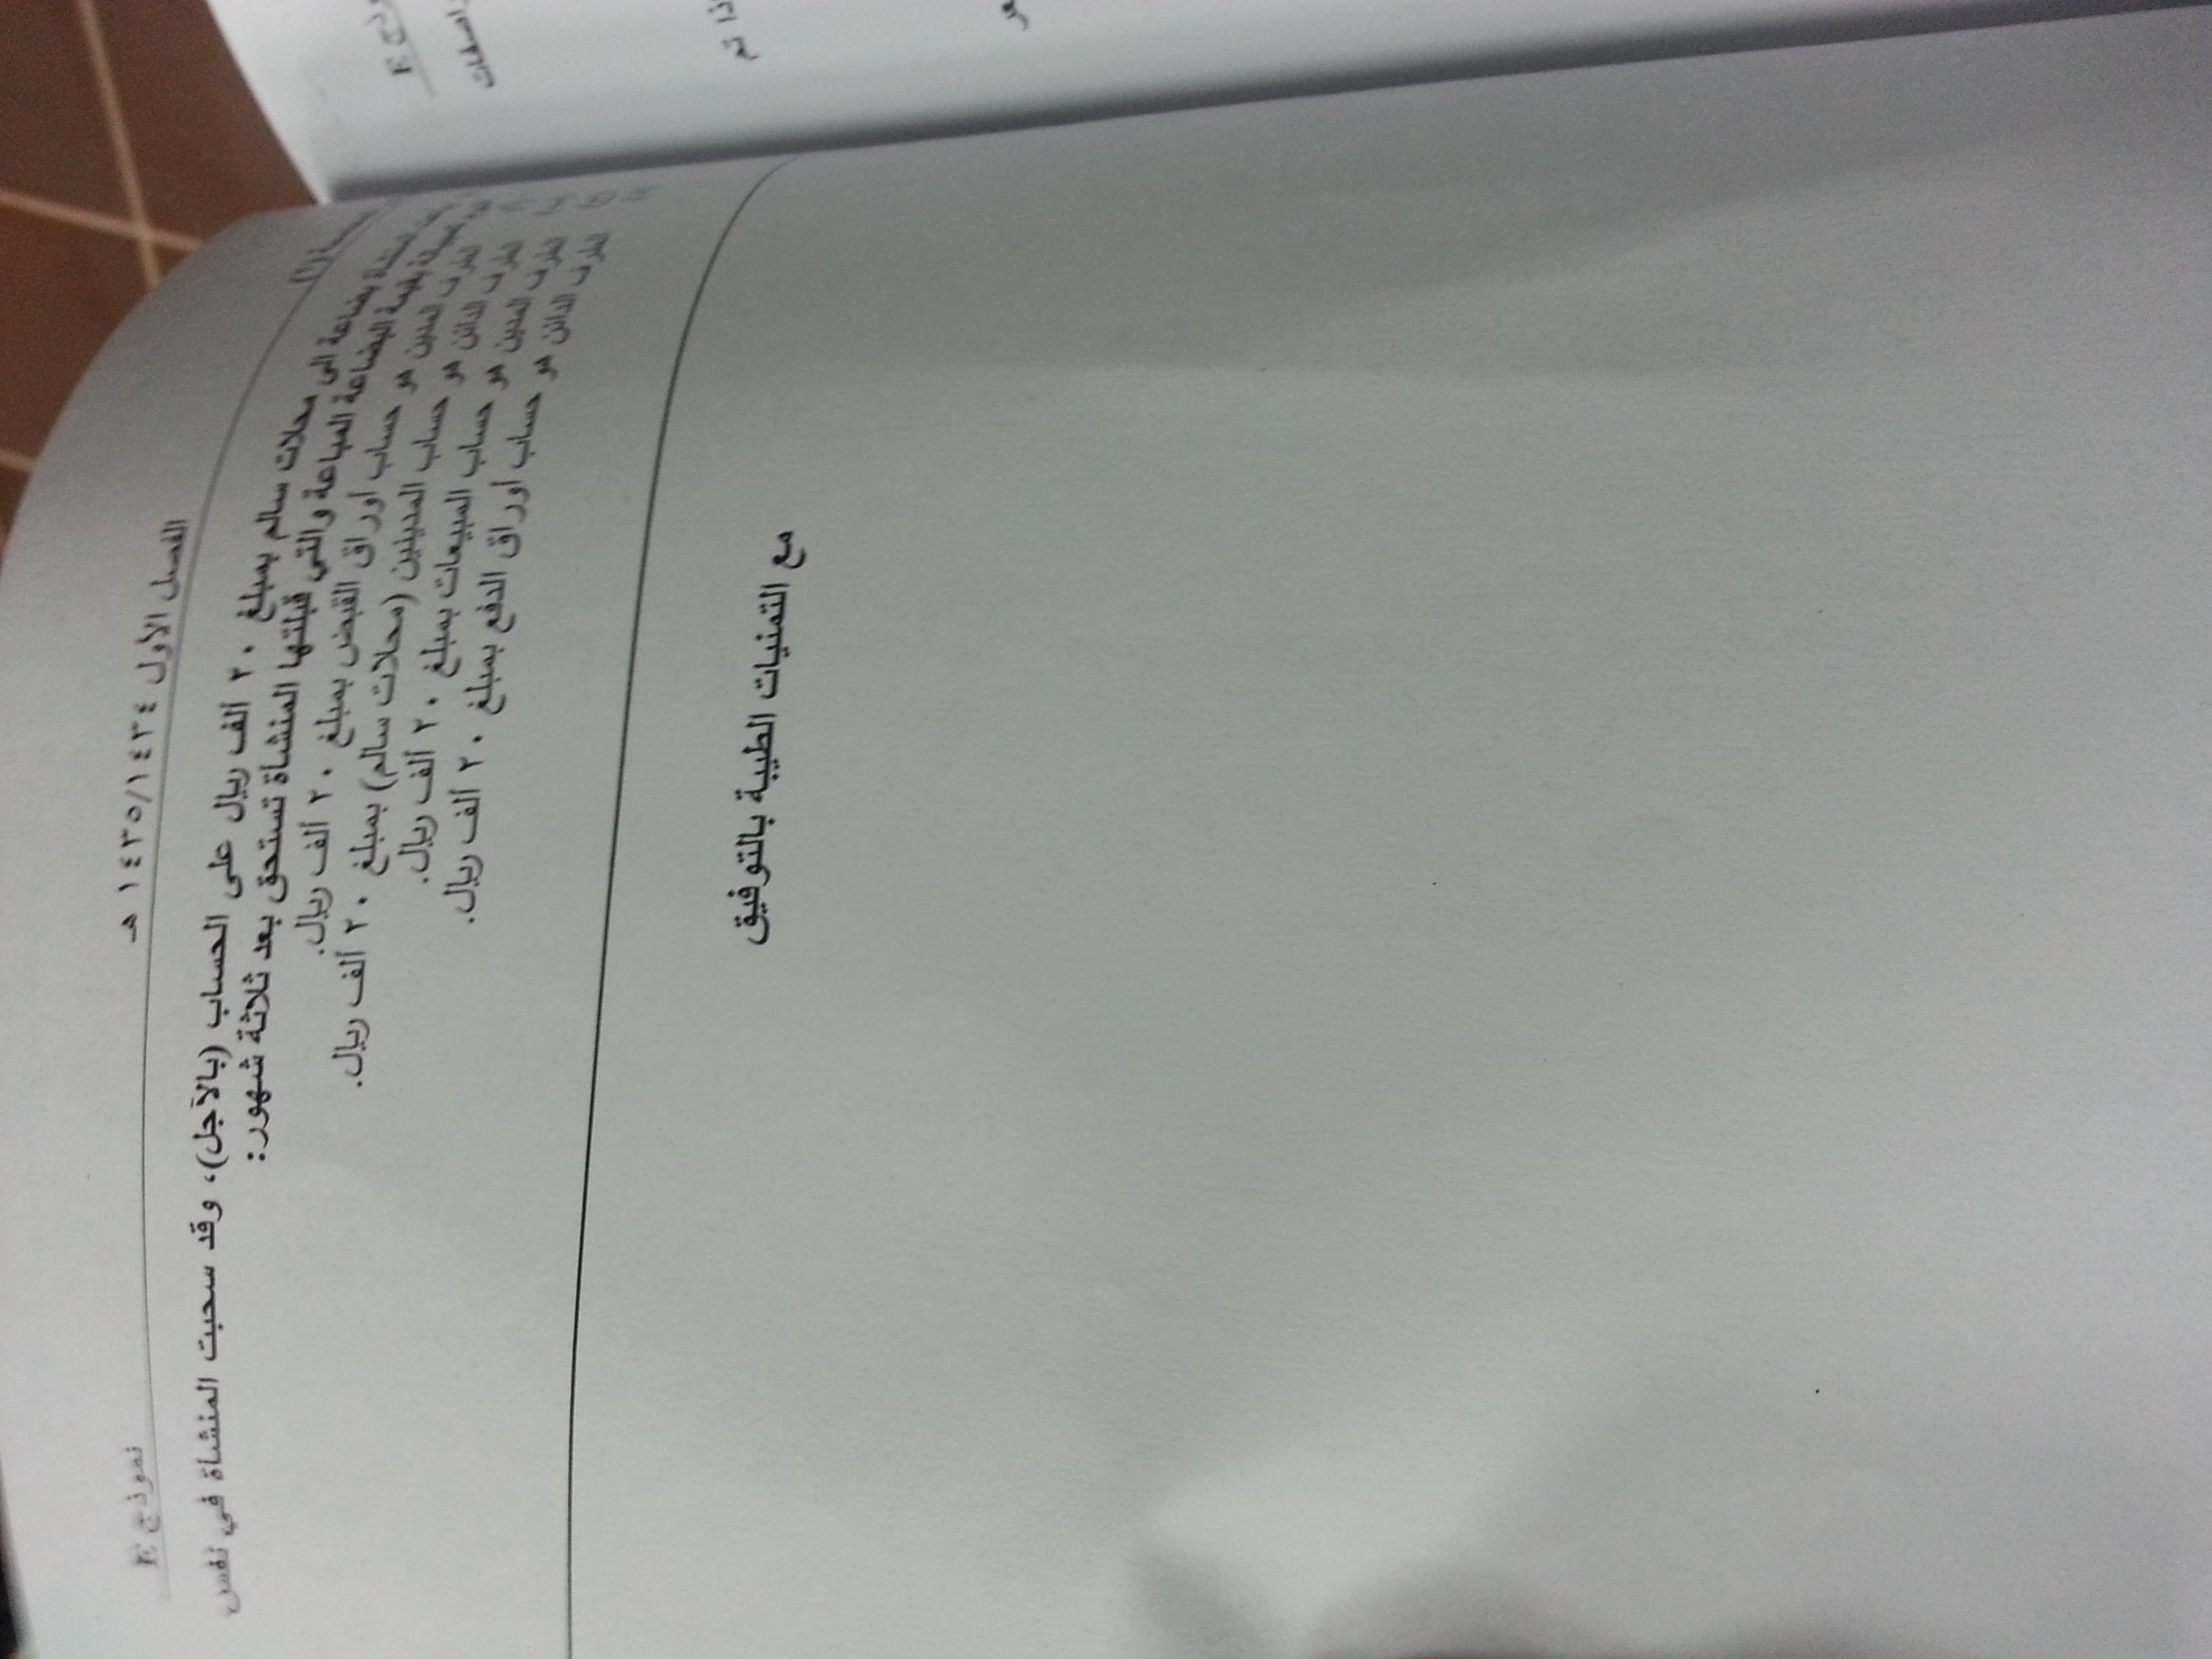 الفصل الأول ١٤٣٥/١٤٣٤ هـ
نموذج E
بضاعة الى محلات سالم بمبلغ ٢٠ ألف ريال على الحساب (بالآجل)، وقد سحبت المنشاة في نفس
بقيمة البضاعة المباعة والتي قبلتها المنشاة تستحق بعد ثلاثة شهور:
الطرف المدين هو حساب أوراق القبض بمبلغ ٢٠ ألف ريال.
الطرف الدائن هو حساب المدينين (محلات سالم) بمبلغ ٢٠ ألف ريال.
الطرف المدين هو حساب المبيعات بمبلغ ٢٠ ألف ريال.
الطرف الدائن هو حساب أوراق الدفع بمبلغ ٢٠ ألف ريال.
مع التمنيات الطيبة بالتوفيق